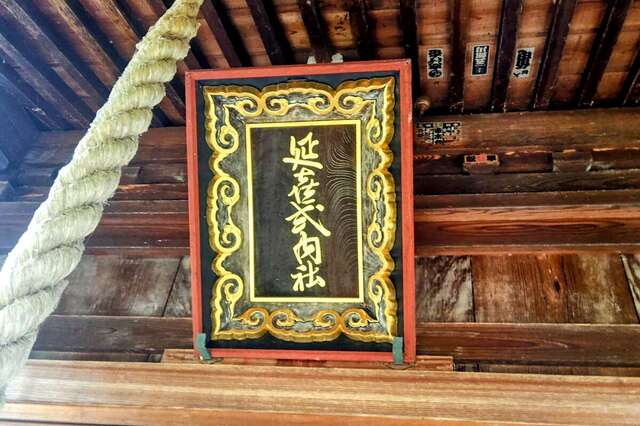 延喜式内社